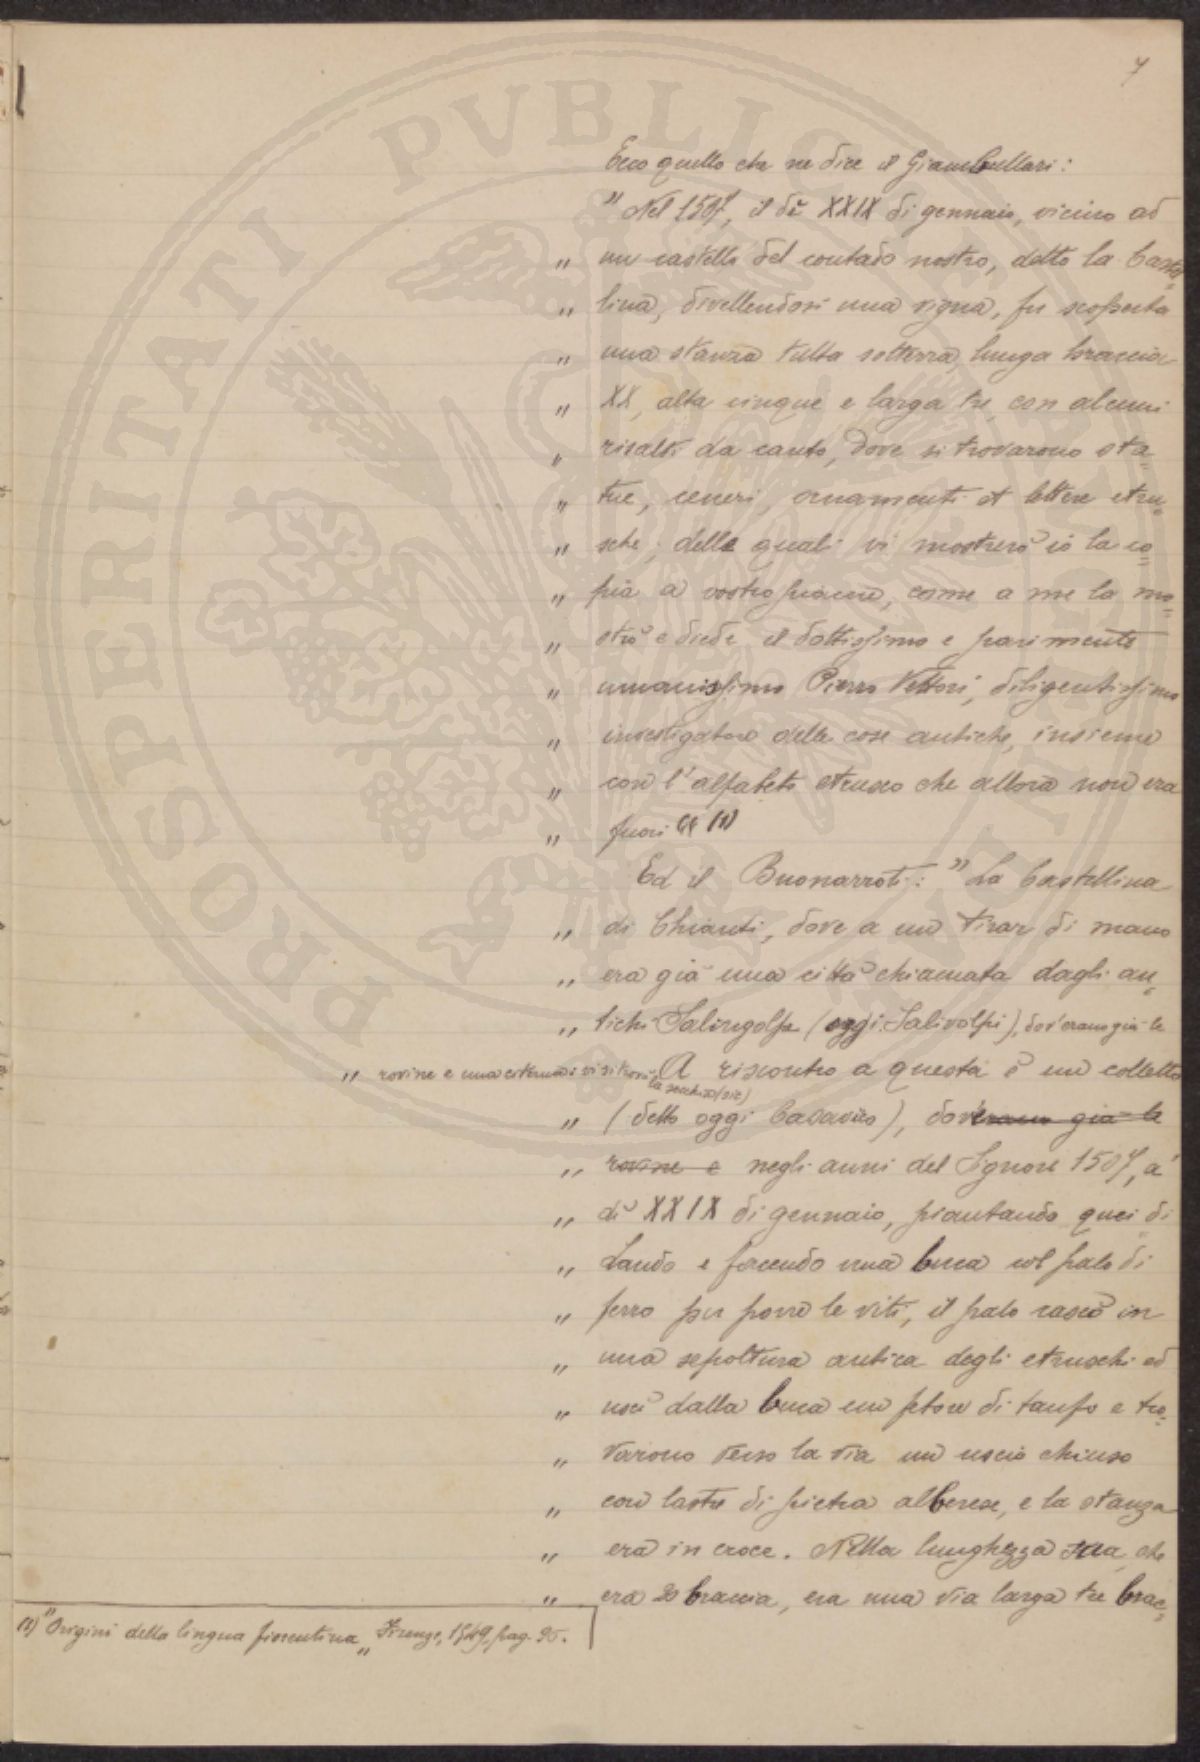 7
Ecco quello che ne dice il Giambullari:
" Nel 1507, il dì XXIX di gennaio, vicino ad
" un castello del contado nostro, detto la Castel=
" lina, divellendosi una vigna, fu scoperta
" una stanza tutta sotterra, lunga braccia
" XX, alta cinque e larga tre, con alcuni
" risalti da canto, dove si trovarono sta=
" tue, ceneri, ornamenti et lettere etru=
" sche; delle quali vi mostrerò io la co=
" pia a vostro piacere, come a me la mo=
" strò e diede il dottissimo e parimente
" umanissimo Pierro Vettori, diligentissimo
" investigatore delle cose antiche, insieme
" con l'alfabeto etrusco che allora non era
" fuori " (1)
Ed il Buonarroti: " La Castellina
" di Chianti, dove a un tirar di mano
" era già una città chiamata dagli an=
" tichi Salingolpe (oggi Salivolpi), dov'erano già le
" rovine e una cisterna: vi si trova A riscontro a questa è un colletto
la secchia (sic)
" (detto oggi Calavico), dov'erano già le
" rovine e negli anni del Signore 1507, a'
" dì XXIX di gennaio, piantando quei di
" Lando e facendo una buca col palo di
" ferro per porre le viti, il palo cascò in
" una sepoltura antica degli etruschi ed
" uscì dalla buca un fetore di tanfo e tro=
" varono verso la via un uscio chiuso
" con lastre di pietra alberese, e la stanza
" era in croce. Nella lunghezza sua, che
" era 20 braccia, era una via larga tre brac=
(1) "Origini della lingua fiorentina" Firenze, 1549, pag. 95.
PROSPERITATI PUBLICAE